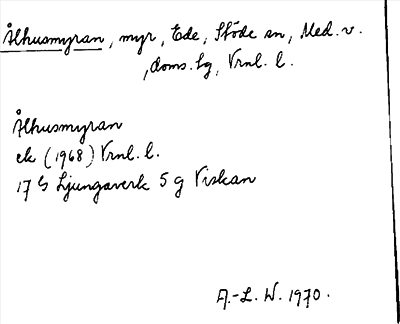 Ålhusmyran, myr, Ede, Stöde sn, Med. v.
, doms. hg, Vrnl. l.
Ålhusmyran
ek (1968) Vrnl. l.
17 G Ljungaverk 5 g Viskan
A.-L. W. 1970.